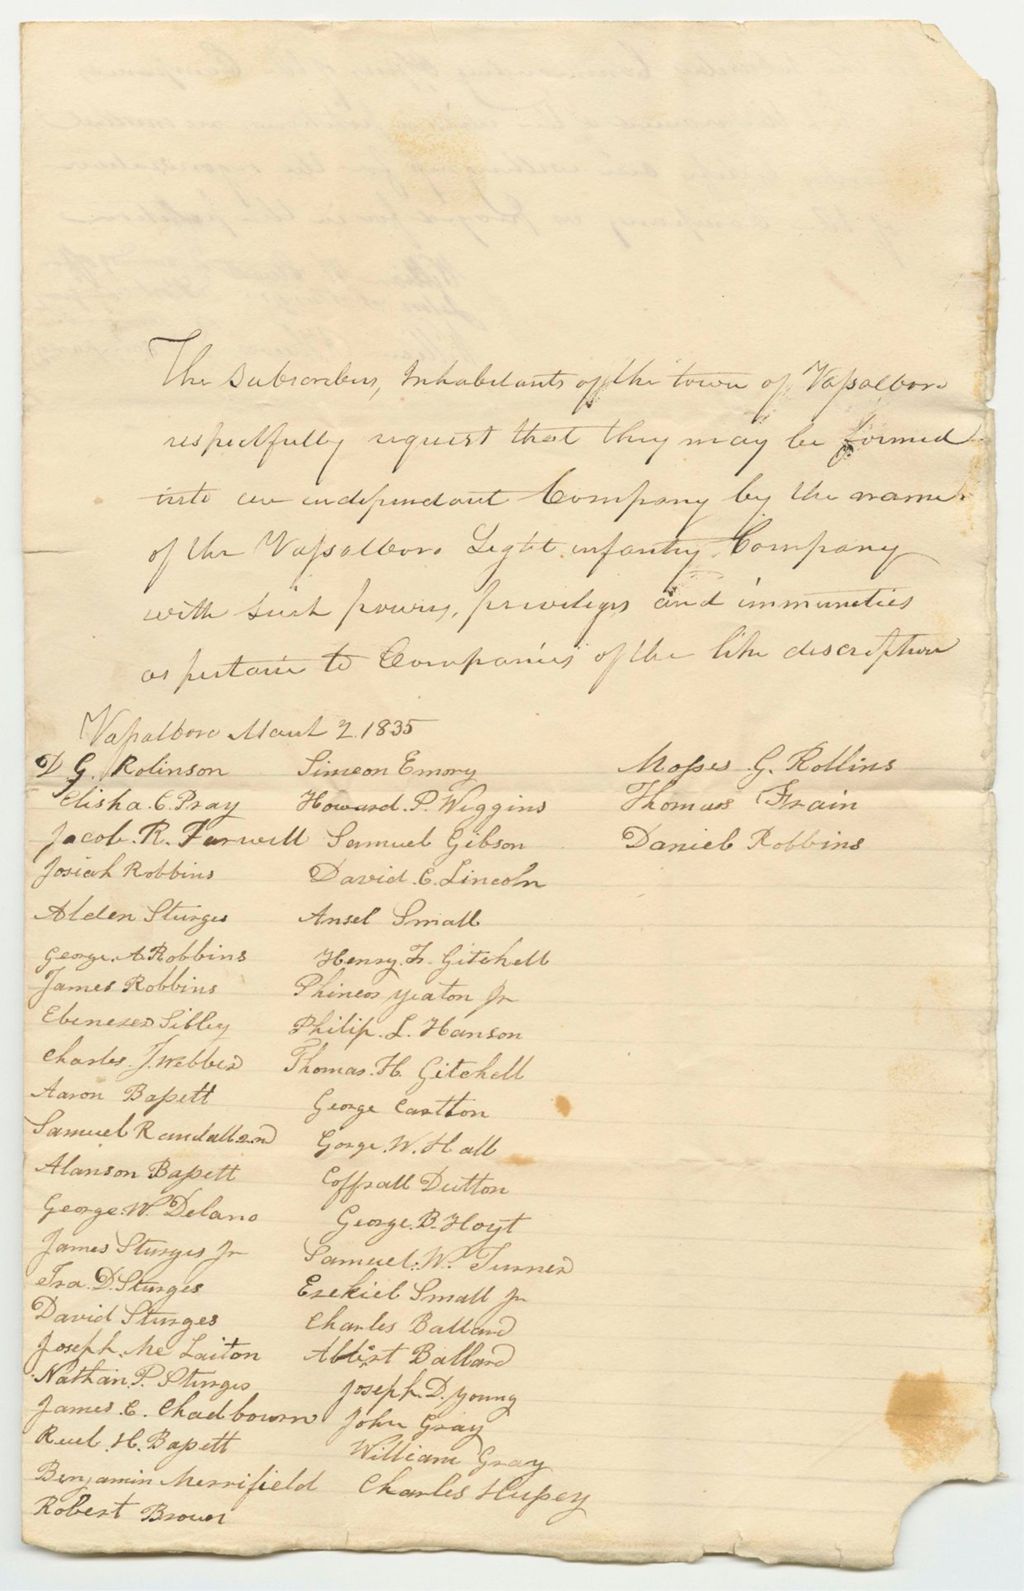 The Subscribers, Inhabitants of the town of Vassalboro
respectfully request that they may be formed
into an independant Company by the name
of the Vassalboro Light infantry Company
with such powers, priviliges and immuneties
as pertain to Companies of the like discription
Vassalboro March 2. 1835
D G. Robinson
Elisha C. Pray
Jacob. R. Farwell
Josiah Robbins
Alden Sturges
George. A Robbins
James Robbins
Ebenezer Sibley
Charles. J. Webber
Aaron Bassett
Samuel Randall 2nd
Alanson Bassett
George. W. Delano
James Sturges Jr
Ira. D. Sturges
David Sturges
Joseph. Mc Laiton
Nathan. P. Sturges
James. C. Chadbourn
Reul. H. Bassett
Benjamin Merrifield
Robert Brown
Simeon Emory
Howard. P. Wiggins
Samuel Gibson
David. C. Lincoln
Ansel Small
Henry. F. Gitchell
Phineos Yeaton Jr
Philip. L. Hanson
Thomas. H. Gitchell
George Carlton
Gorge. W. Hall
Coffrall Dutton
George. B. Hoyt
Samuel. W. Turner
Ezekiel Small Jr
Charles Ballard
Albert Ballard
Joseph. D. Young
John Gray
William Gray
Charles Hussey
Mosses G. Rollins
Thomas Frain
Daniel Robbins